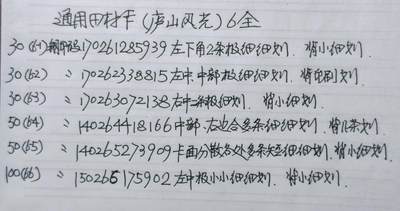 通用田村卡(庐山风光)6全
30(61)钢印码170261285939左下角2条极细细划. 背小细划.
30(62) 〃 170262338815左中.中部极细细划. 背印刷划.
30(63) 〃 170263072138左中2条极细划. 背小细划.
50(64) 〃 140264418166中部.右边合多条细细细划. 背几条划.
50(65) 〃 140265273909卡面分散各处多条短细细划. 背小细划.
100(66) 〃 150266175902左中极小小细细划. 背小细划.